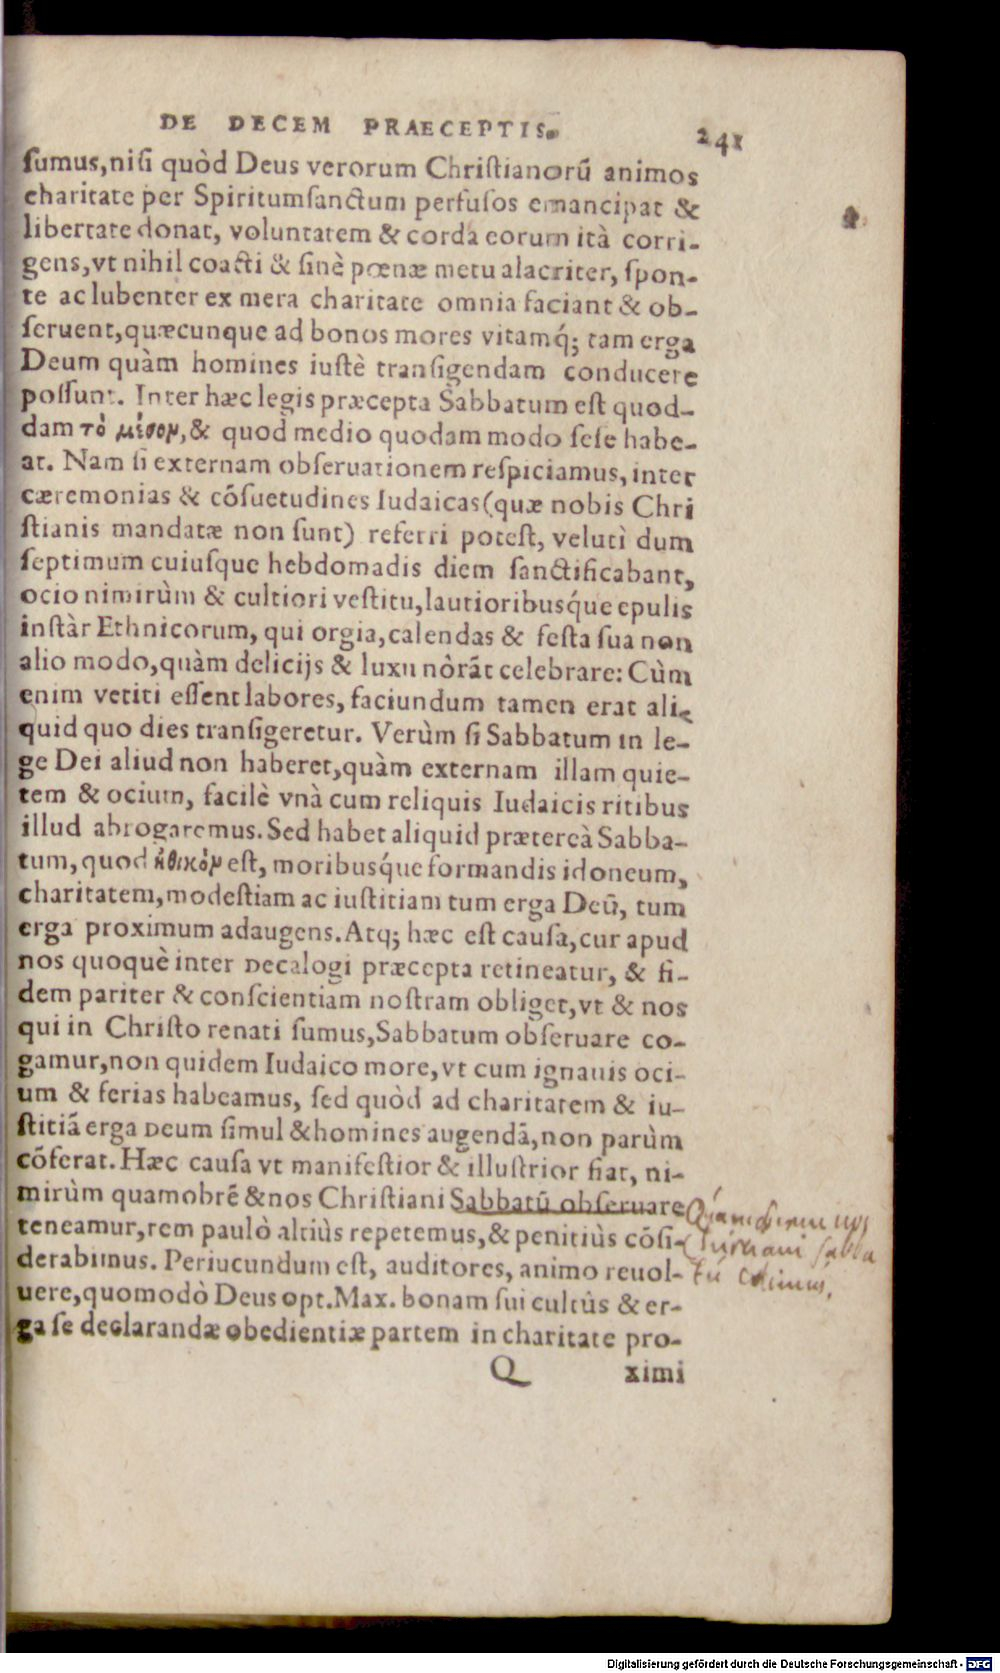 DE DECEM PRAECEPTIS. 241
ſumus, niſi quòd Deus verorum Chriſtianorũ animos
charitate per Spiritumſanctum perfuſos emancipat &
libertate donat, voluntatem & corda eorum ità corri-
gens, vt nihil coacti & ſinè pœnæ metu alacriter, ſpon-
te ac lubenter ex mera charitate omnia faciant & ob-
ſeruent, quæcunque ad bonos mores vitamq́; tam erga
Deum quàm homines iuſtè tranſigendam conducere
poſſunt. Inter hæc legis præcepta Sabbatum eſt quod-
dam τὸ μέσον, & quod medio quodam modo ſeſe habe-
at. Nam ſi externam obſeruationem reſpiciamus, inter
cæremonias & cõſuetudines Iudaicas (quæ nobis Chri
ſtianis mandatæ non ſunt) referri poteſt, velutì dum
ſeptimum cuiuſque hebdomadis diem ſanctificabant,
ocio nimirùm & cultiori veſtitu, lautioribusq́ue epulis
inſtàr Ethnicorum, qui orgia, calendas & feſta ſua non
alio modo, quàm delicijs & luxu nôrãt celebrare: Cùm
enim vetiti eſſent labores, faciundum tamen erat ali-
quid quo dies tranſigeretur. Verùm ſi Sabbatum in le-
ge Dei aliud non haberet, quàm externam illam quie-
tem & ocium, facilè vnà cum reliquis Iudaicis ritibus
illud abrogaremus. Sed habet aliquid prætereà Sabba-
tum, quod ἠθικὸν eſt, moribusq́ue formandis idoneum,
charitatem, modeſtiam ac iuſtitiam tum erga Deũ, tum
erga proximum adaugens. Atq; hæc eſt cauſa, cur apud
nos quoquè inter Decalogi præcepta retineatur, & fi-
dem pariter & conſcientiam noſtram obliget, vt & nos
qui in Chriſto renati ſumus, Sabbatum obſeruare co-
gamur, non quidem Iudaico more, vt cum ignauis oci-
um & ferias habeamus, ſed quòd ad charitatem & iu-
ſtitiã erga Deum ſimul & homines augendã, non parùm
cõferat. Hæc cauſa vt manifeſtior & illuſtrior fiat, ni-
mirùm quamobrẽ & nos Chriſtiani Sabbatũ obſeruare
teneamur, rem paulò altiùs repetemus, & penitiùs cõſi-
derabimus. Periucundum eſt, auditores, animo reuol-
uere, quomodò Deus opt. Max. bonam ſui cultûs & er-
ga ſe declarandæ obedientiæ partem in charitate pro-
Q ximi
Christiani sabba
tũ colimus.
Digitalisierung gefördert durch die Deutsche Forschungsgemeinschaft - DFG